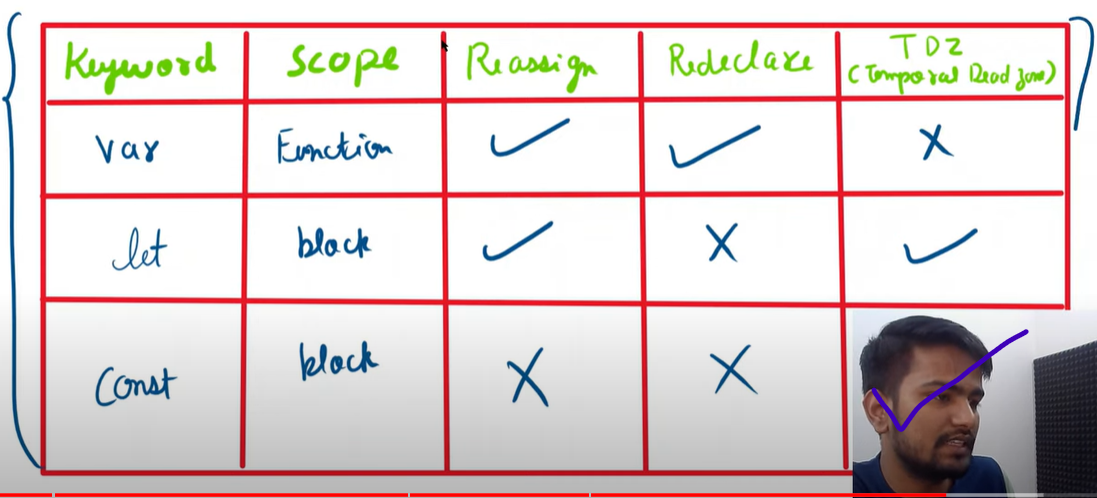 Keyword Scope Reassign Redeclare TDZ
(Temporal Dead Zone)
var Function ✓ ✓ X
let block ✓ X ✓
Const block X X ✓